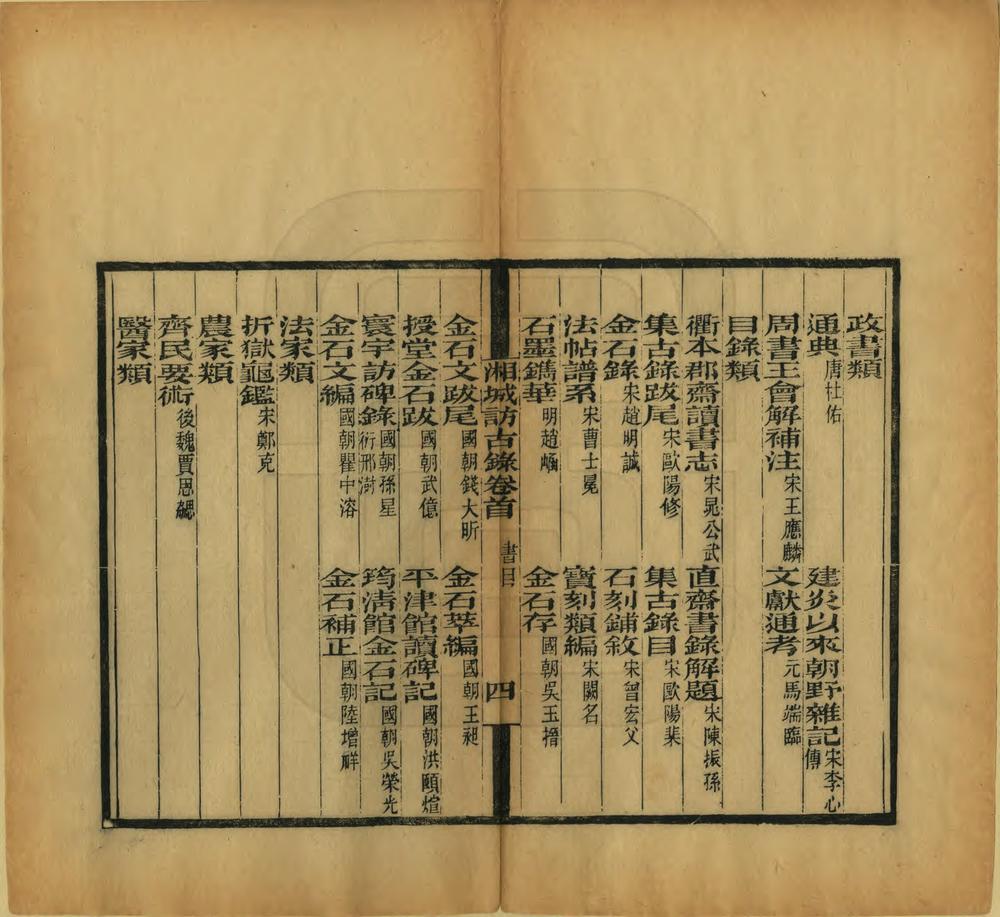 政書類
通典唐杜佑　建炎以來朝野雜記宋李心傳
周書王會解補注宋王應麟　文獻通考元馬端臨
目錄類
衢本郡齋讀書志宋晁公武　直齋書錄解題宋陳振孫
集古錄跋尾宋歐陽修　集古錄目宋歐陽棐
金石錄宋趙明誠　石刻鋪敘宋曾宏父
法帖譜系宋曹士冕　寶刻類編宋闕名
石墨鐫華明趙崡　金石存國朝吳玉搢
湘城訪古錄卷首　書目　四
金石文跋尾國朝錢大昕　金石萃編國朝王昶
授堂金石跋國朝武億　平津館讀碑記國朝洪頤煊
寰宇訪碑錄國朝孫星衍邢澍　筠淸館金石記國朝吳榮光
金石文編國朝瞿中溶　金石補正國朝陸增祥
法家類
折獄龜鑑宋鄭克
農家類
齊民要術後魏賈思勰
醫家類